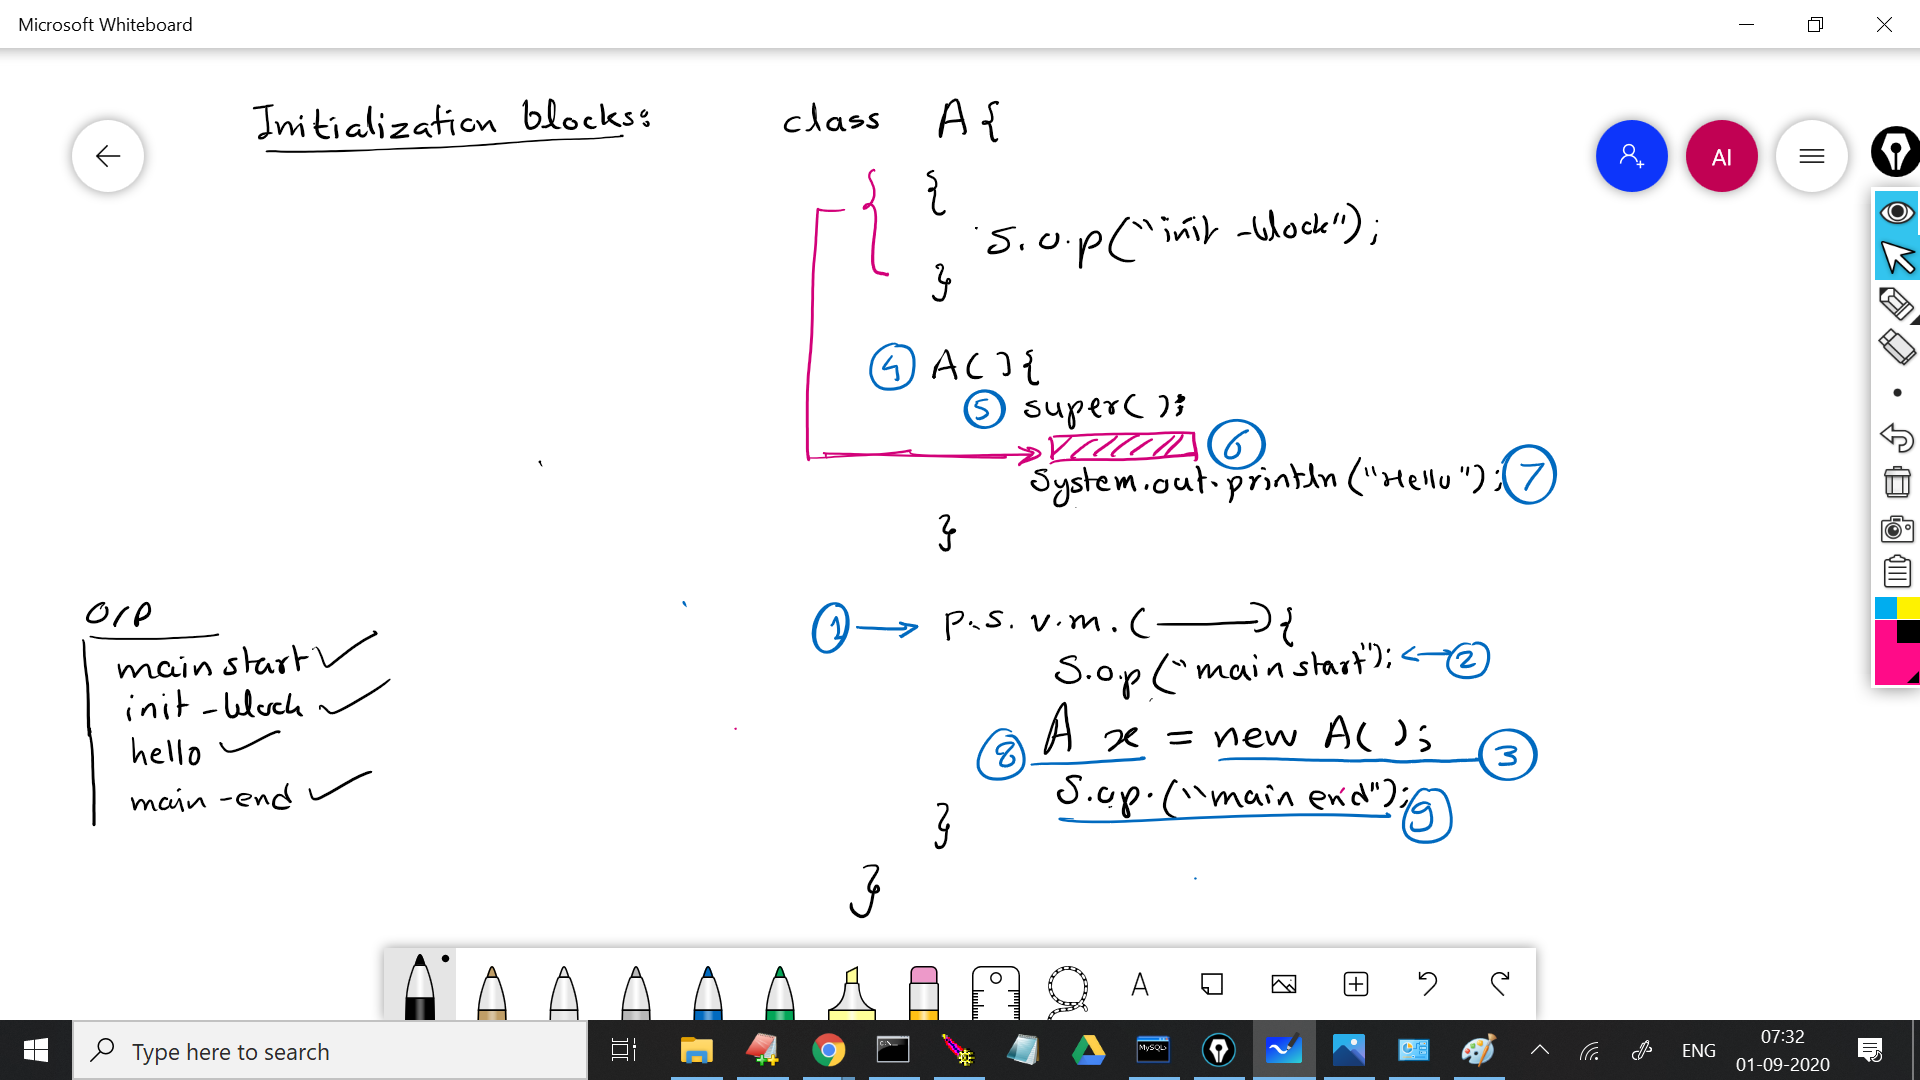 Microsoft Whiteboard
Initialization blocks:
class A{
{
S.o.p("init-block");
}
AI
4 A(){
5 super();
6
System.out.println("Hello"); 7
}
1 p.s.v.m.( ){
S.o.p("main start"); 2
8 A x = new A(); 3
S.op.("main end"); 9
}
}
O/P
main start
init-block
hello
main-end
Type here to search
C:\
MySQL
ENG
07:32
01-09-2020